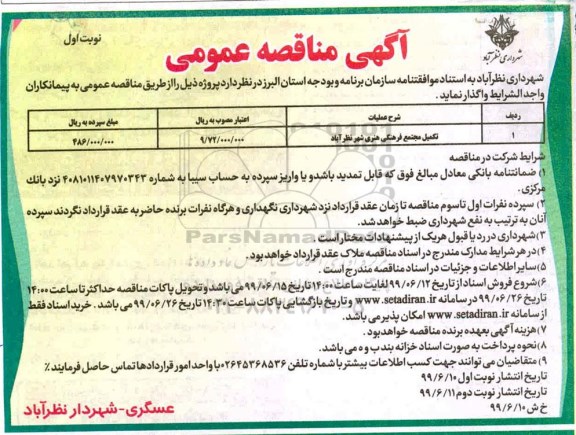 نوبت اول
آگهی مناقصه عمومی
شهرداری نظرآباد
شهرداری نظرآباد به استناد موافقتنامه سازمان برنامه و بودجه استان البرز در نظر دارد پروژه ذیل را از طریق مناقصه عمومی به پیمانکاران
واجد الشرایط واگذار نماید.
ردیف شرح عملیات اعتبار مصوب به ریال مبلغ سپرده به ریال
۱ تکمیل مجتمع فرهنگی هنری شهر نظرآباد ۹/۷۲/۰۰۰/۰۰۰ ۴۸۶/۰۰۰/۰۰۰
شرایط شرکت در مناقصه
۱) ضمانتنامه بانکی معادل مبالغ فوق که قابل تمدید باشد و یا واریز سپرده به حساب سیبا به شماره ۴۰۸۱۰۱۱۴۰۷۹۷۰۳۴۳ نزد بانک
مرکزی.
۲) سپرده نفرات اول تا سوم مناقصه تا زمان عقد قرارداد نزد شهرداری نگهداری و هرگاه نفرات برنده حاضر به عقد قرارداد نگردند سپرده
آنان به ترتیب به نفع شهرداری ضبط خواهد شد.
۳) شهرداری در رد یا قبول هریک از پیشنهادات مختار است.
۴) در هر شرایط مدارک مندرج در اسناد مناقصه ملاک عقد قرارداد خواهد بود.
۵) سایر اطلاعات و جزئیات در اسناد مناقصه مندرج است
۶) شروع فروش اسناد از تاریخ ۹۹/۰۶/۱۲ لغایت ساعت ۱۴:۰۰ تاریخ ۹۹/۰۶/۱۵ می باشد و تحویل پاکات مناقصه حداکثر تا ساعت ۱۴:۰۰
تاریخ ۹۹/۰۶/۲۶ در سامانه www.setadiran.ir و تاریخ بازگشایی پاکات ساعت ۱۴:۳۰ تاریخ ۹۹/۰۶/۲۶ می باشد. خرید اسناد فقط
از سامانه www.setadiran.ir امکان پذیر می باشد.
۷) هزینه آگهی بعهده برنده مناقصه خواهد بود.
۸) نحوه پرداخت به صورت اسناد خزانه بند ب و ه می باشد.
۹) متقاضیان می توانند جهت کسب اطلاعات بیشتر با شماره تلفن ۰۲۶۴۵۳۶۸۵۳۶ با واحد امور قراردادها تماس حاصل فرمایند٪
تاریخ انتشار نوبت اول ۹۹/۶/۱۰
تاریخ انتشار نوبت دوم ۹۹/۶/۱۱
خ ش ۹۹/۶/۱۰
عسگری - شهردار نظرآباد